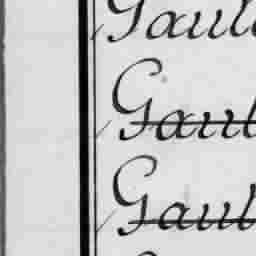 Gaul
Gaul
Gaul